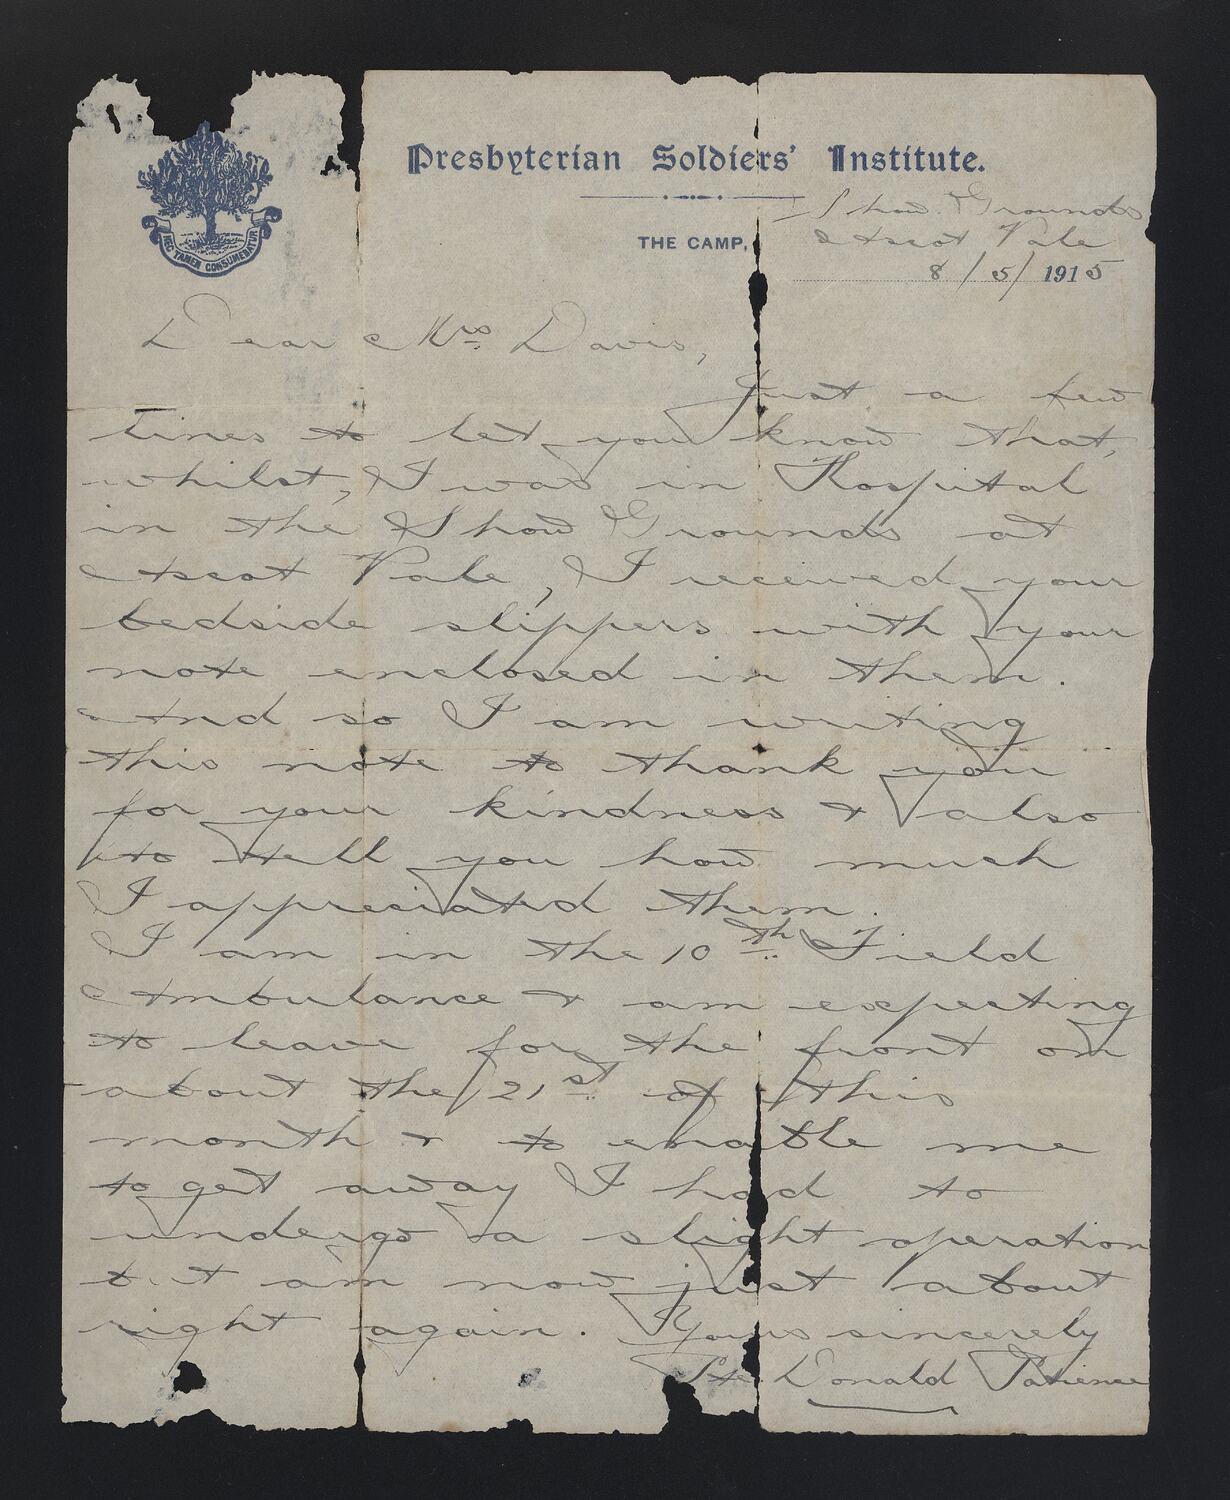 Presbyterian Soldiers' Institute.
NEC TAMEN CONSUMEBATUR
Show Grounds
THE CAMP, Ascot Vale
8/5/1915
Dear Mrs Davis,
Just a few
lines to let you know that,
whilst, I was in Hospital
in the Show Grounds at
Ascot Vale, I received your
bedside slippers with your
note enclosed in them.
And so I am writing
this note to thank you
for your kindness & also
to tell you how much
I appreciated them.
I am in the 10th Field
Ambulance & am expecting
to leave for the front on
about the 21st of this
month & to enable me
to get away I had to
undergo a slight operation
but am now just about
right again. Yours sincerely
Pte Donald Patience